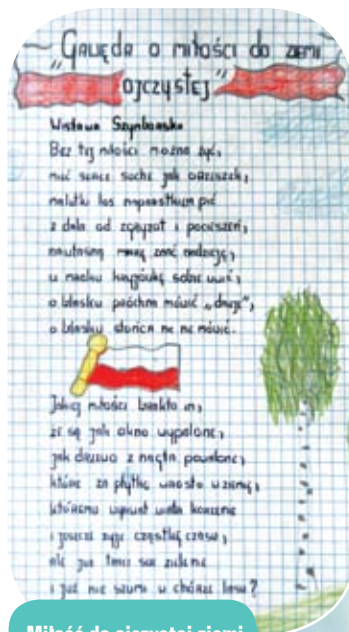 „Gawęda o miłości do ziemi
ojczystej"
Wisława Szymborska
Bez tej miłości można żyć,
mieć serce suche jak orzeszek,
malutki los naparstkiem pić
z dala od zgryzot i pocieszeń,
na własną miarę znać nadzieję,
w mroku kryjówkę sobie uwić,
o blasku próchna mówić „dnieje",
o blasku słońca nic nie mówić.
Jakiej miłości brakło im,
że są jak okno wypalone,
jak drzewo z nagła powalone,
które za płytko wrosło w ziemię,
któremu wyrwał wiatr korzenie
i jeszcze żyje cząstkę czasu,
ale już traci swą zieleń
i już nie szumi w chórze lasu?
Miłość do ojczystej ziemi